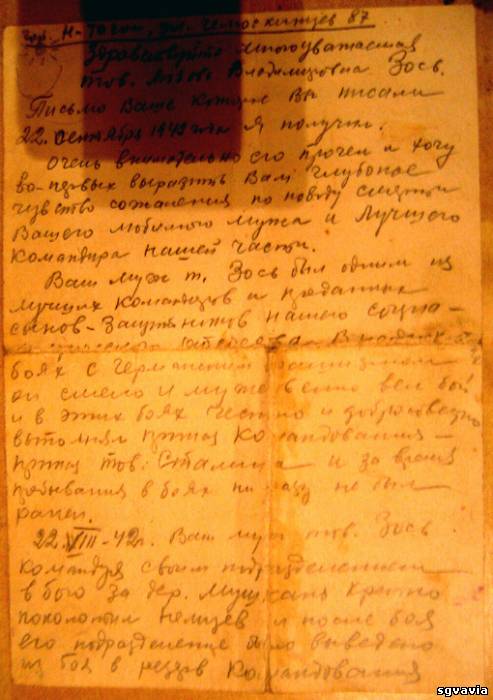 гор. Н-Тагил, ул. Челюскинцев 87
Здравствуйте многоуважаемая
тов. Любовь Владимировна Зось.
Письмо Ваше которое Вы писали
22. сентября 1942 года я получил.
Очень внимательно его прочел и хочу
во-первых выразить Вам глубокое
чувство сожаления по поводу смерти
Вашего любимого мужа и Лучшего
Командира нашей части.
Ваш муж т. Зось был одним из
лучших Командиров и преданных
сынов-Защитников нашего социа-
листического отечества. В
боях с Германским фашизмом
он смело и мужественно вел бой
и в этих боях честно и добросовестно
выполнял приказ Командования -
приказ тов. Сталина и за время
пребывания в боях ни разу не был
ранен.
22.VIII-42г. Ваш муж тов. Зось
командуя своим подразделением
в бою за дер. крепко
поколотил немцев и после боя
его подразделение было выведено
из боя в резерв Командования
sgvavia